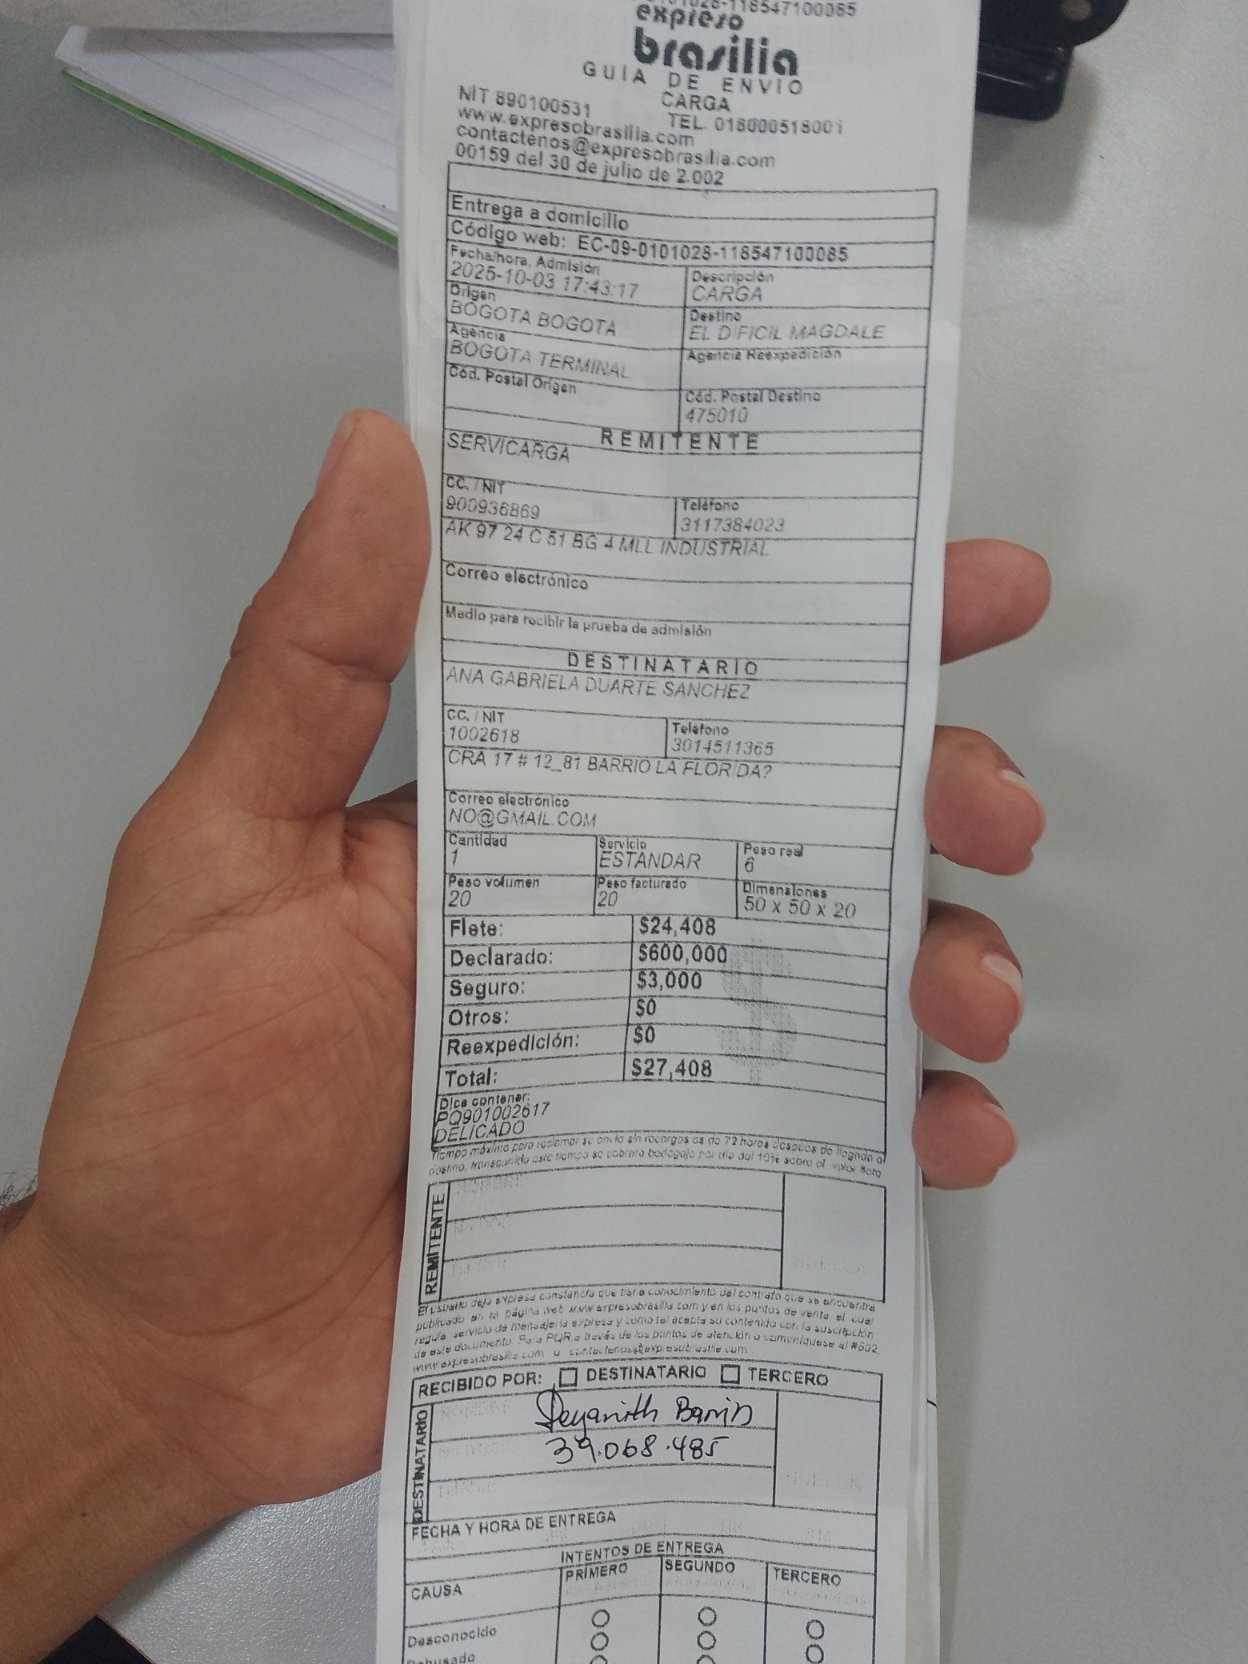 expreso
brasilia
GUIA DE ENVIO
CARGA
NIT 890100531 TEL. 018000518001
www.expresobrasilia.com
contactenos@expresobrasilia.com
00159 del 30 de julio de 2.002
Entrega a domicilio
Código web: EC-09-0101028-118547100085
Fecha/hora. Admisión Descripción
2025-10-03 17:43:17 CARGA
Origen Destino
BOGOTA BOGOTA EL DIFICIL MAGDALE
Agencia Agencia Reexpedición
BOGOTA TERMINAL
Cód. Postal Origen Cód. Postal Destino
475010
REMITENTE
SERVICARGA
CC. / NIT Teléfono
900936869 3117384023
AK 97 24 C 51 BG 4 MLL INDUSTRIAL
Correo electrónico
Medio para recibir la prueba de admisión
DESTINATARIO
ANA GABRIELA DUARTE SANCHEZ
CC. / NIT Teléfono
1002618 3014511365
CRA 17 # 12_81 BARRIO LA FLORIDA?
Correo electrónico
NO@GMAIL.COM
Cantidad Servicio Peso real
1 ESTANDAR 6
Peso volumen Peso facturado Dimensiones
20 20 50 x 50 x 20
Flete: $24,408
Declarado: $600,000
Seguro: $3,000
Otros: $0
Reexpedición: $0
Total: $27,408
Dice contener:
PQ901002617
DELICADO
Tiempo máximo para reclamar su envío sin recargos es de 72 horas después de llegada a
destino, transcurrido este tiempo se cobrara bodegaje por día del 10% sobre el valor flete
REMITENTE
El usuario deja expresa constancia que tiene conocimiento del contrato que se encuentra
publicado en la página web www.expresobrasilia.com y en los puntos de venta, el cual
regula servicio de mensajería expresa y como tal acepta su contenido con la suscripción
de este documento. Para PQR a través de los puntos de atención o comuníquese al #502
www.expresobrasilia.com o contactenos@expresobrasilia.com
RECIBIDO POR: DESTINATARIO TERCERO
DESTINATARIO
39.068.485
FECHA Y HORA DE ENTREGA
INTENTOS DE ENTREGA
CAUSA PRIMERO SEGUNDO TERCERO
Desconocido
Rehusado